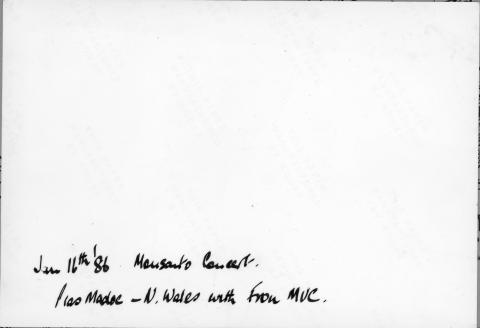 Jan 16th '86 Monsanto Concert.
Plas Madoc - N. Wales with Fron MVC.